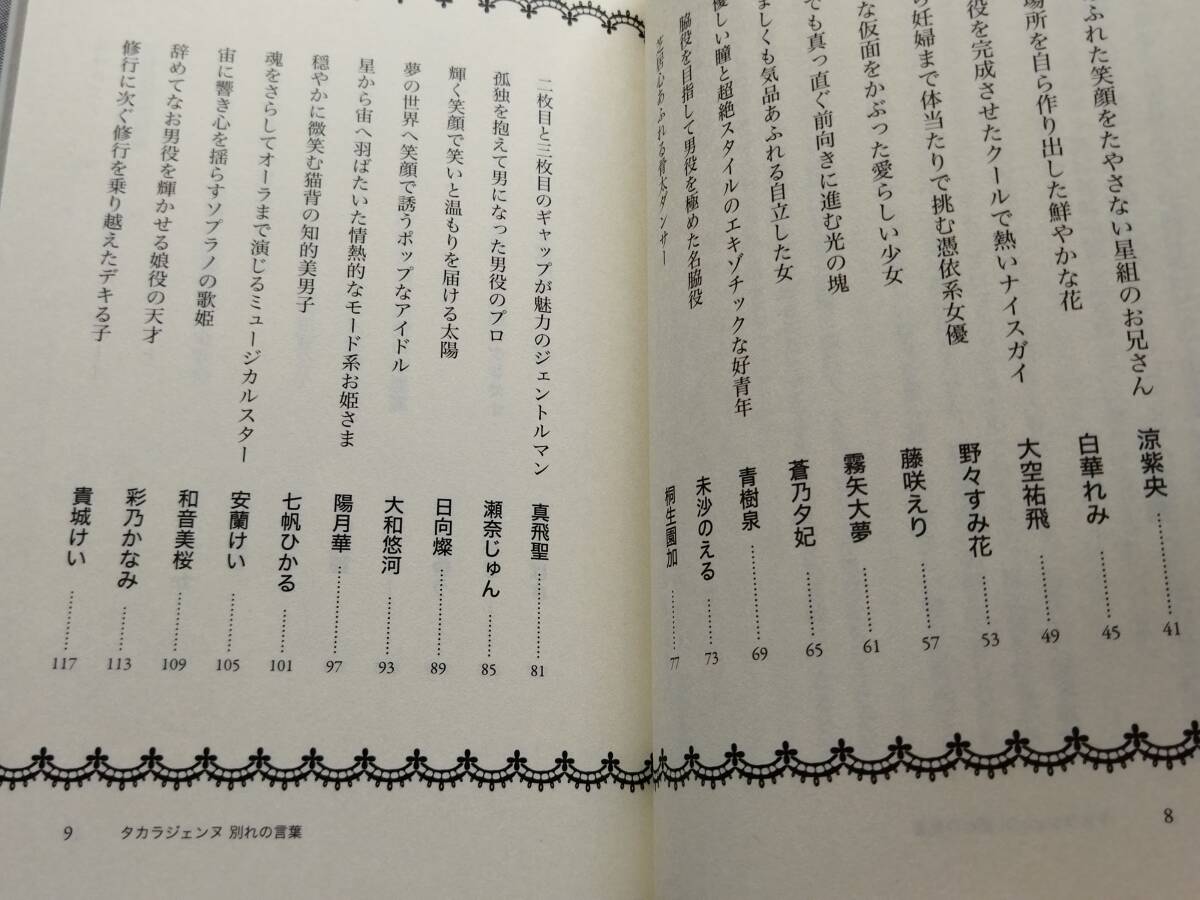 あふれた笑顔をたやさない星組のお兄さん 涼紫央 ………… 41
場所を自ら作り出した鮮やかな花 白華れみ ………… 45
役を完成させたクールで熱いナイスガイ 大空祐飛 ………… 49
ら妊婦まで体当たりで挑む憑依系女優 野々すみ花 ………… 53
な仮面をかぶった愛らしい少女 藤咲えり ………… 57
でも真っ直ぐ前向きに進む光の塊 霧矢大夢 ………… 61
ましくも気品あふれる自立した女 蒼乃夕妃 ………… 65
優しい瞳と超絶スタイルのエキゾチックな好青年 青樹泉 ………… 69
脇役を目指して男役を極めた名脇役 未沙のえる ………… 73
芝居心あふれる骨太ダンサー 桐生園加 ………… 77
8
二枚目と三枚目のギャップが魅力のジェントルマン 真飛聖 ………… 81
孤独を抱えて男になった男役のプロ 瀬奈じゅん ………… 85
輝く笑顔で笑いと温もりを届ける太陽 日向燦 ………… 89
夢の世界へ笑顔で誘うポップなアイドル 大和悠河 ………… 93
星から宙へ羽ばたいた情熱的なモード系お姫さま 陽月華 ………… 97
穏やかに微笑む猫背の知的美男子 七帆ひかる ………… 101
魂をさらしてオーラまで演じるミュージカルスター 安蘭けい ………… 105
宙に響き心を揺らすソプラノの歌姫 和音美桜 ………… 109
辞めてなお男役を輝かせる娘役の天才 彩乃かなみ ………… 113
修行に次ぐ修行を乗り越えたデキる子 貴城けい ………… 117
9 タカラジェンヌ 別れの言葉